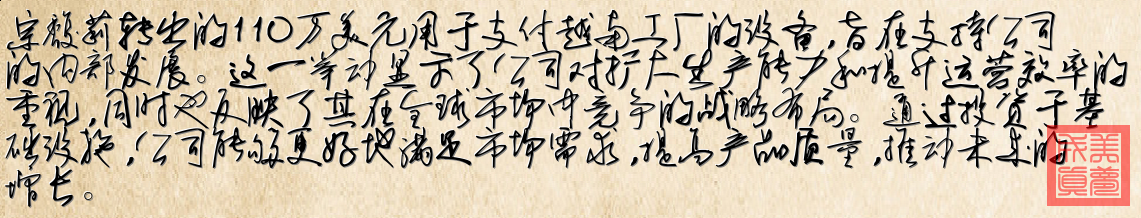 宗馥莉转出的110万美元用于支付越南工厂的设备,旨在支持公司
的内部发展。这一举动显示了公司对扩大生产能力和提升运营效率的
重视,同时也反映了其在全球市场中竞争的战略布局。通过投资于基
础设施,公司能够更好地满足市场需求,提高产品质量,推动未来的
增长。